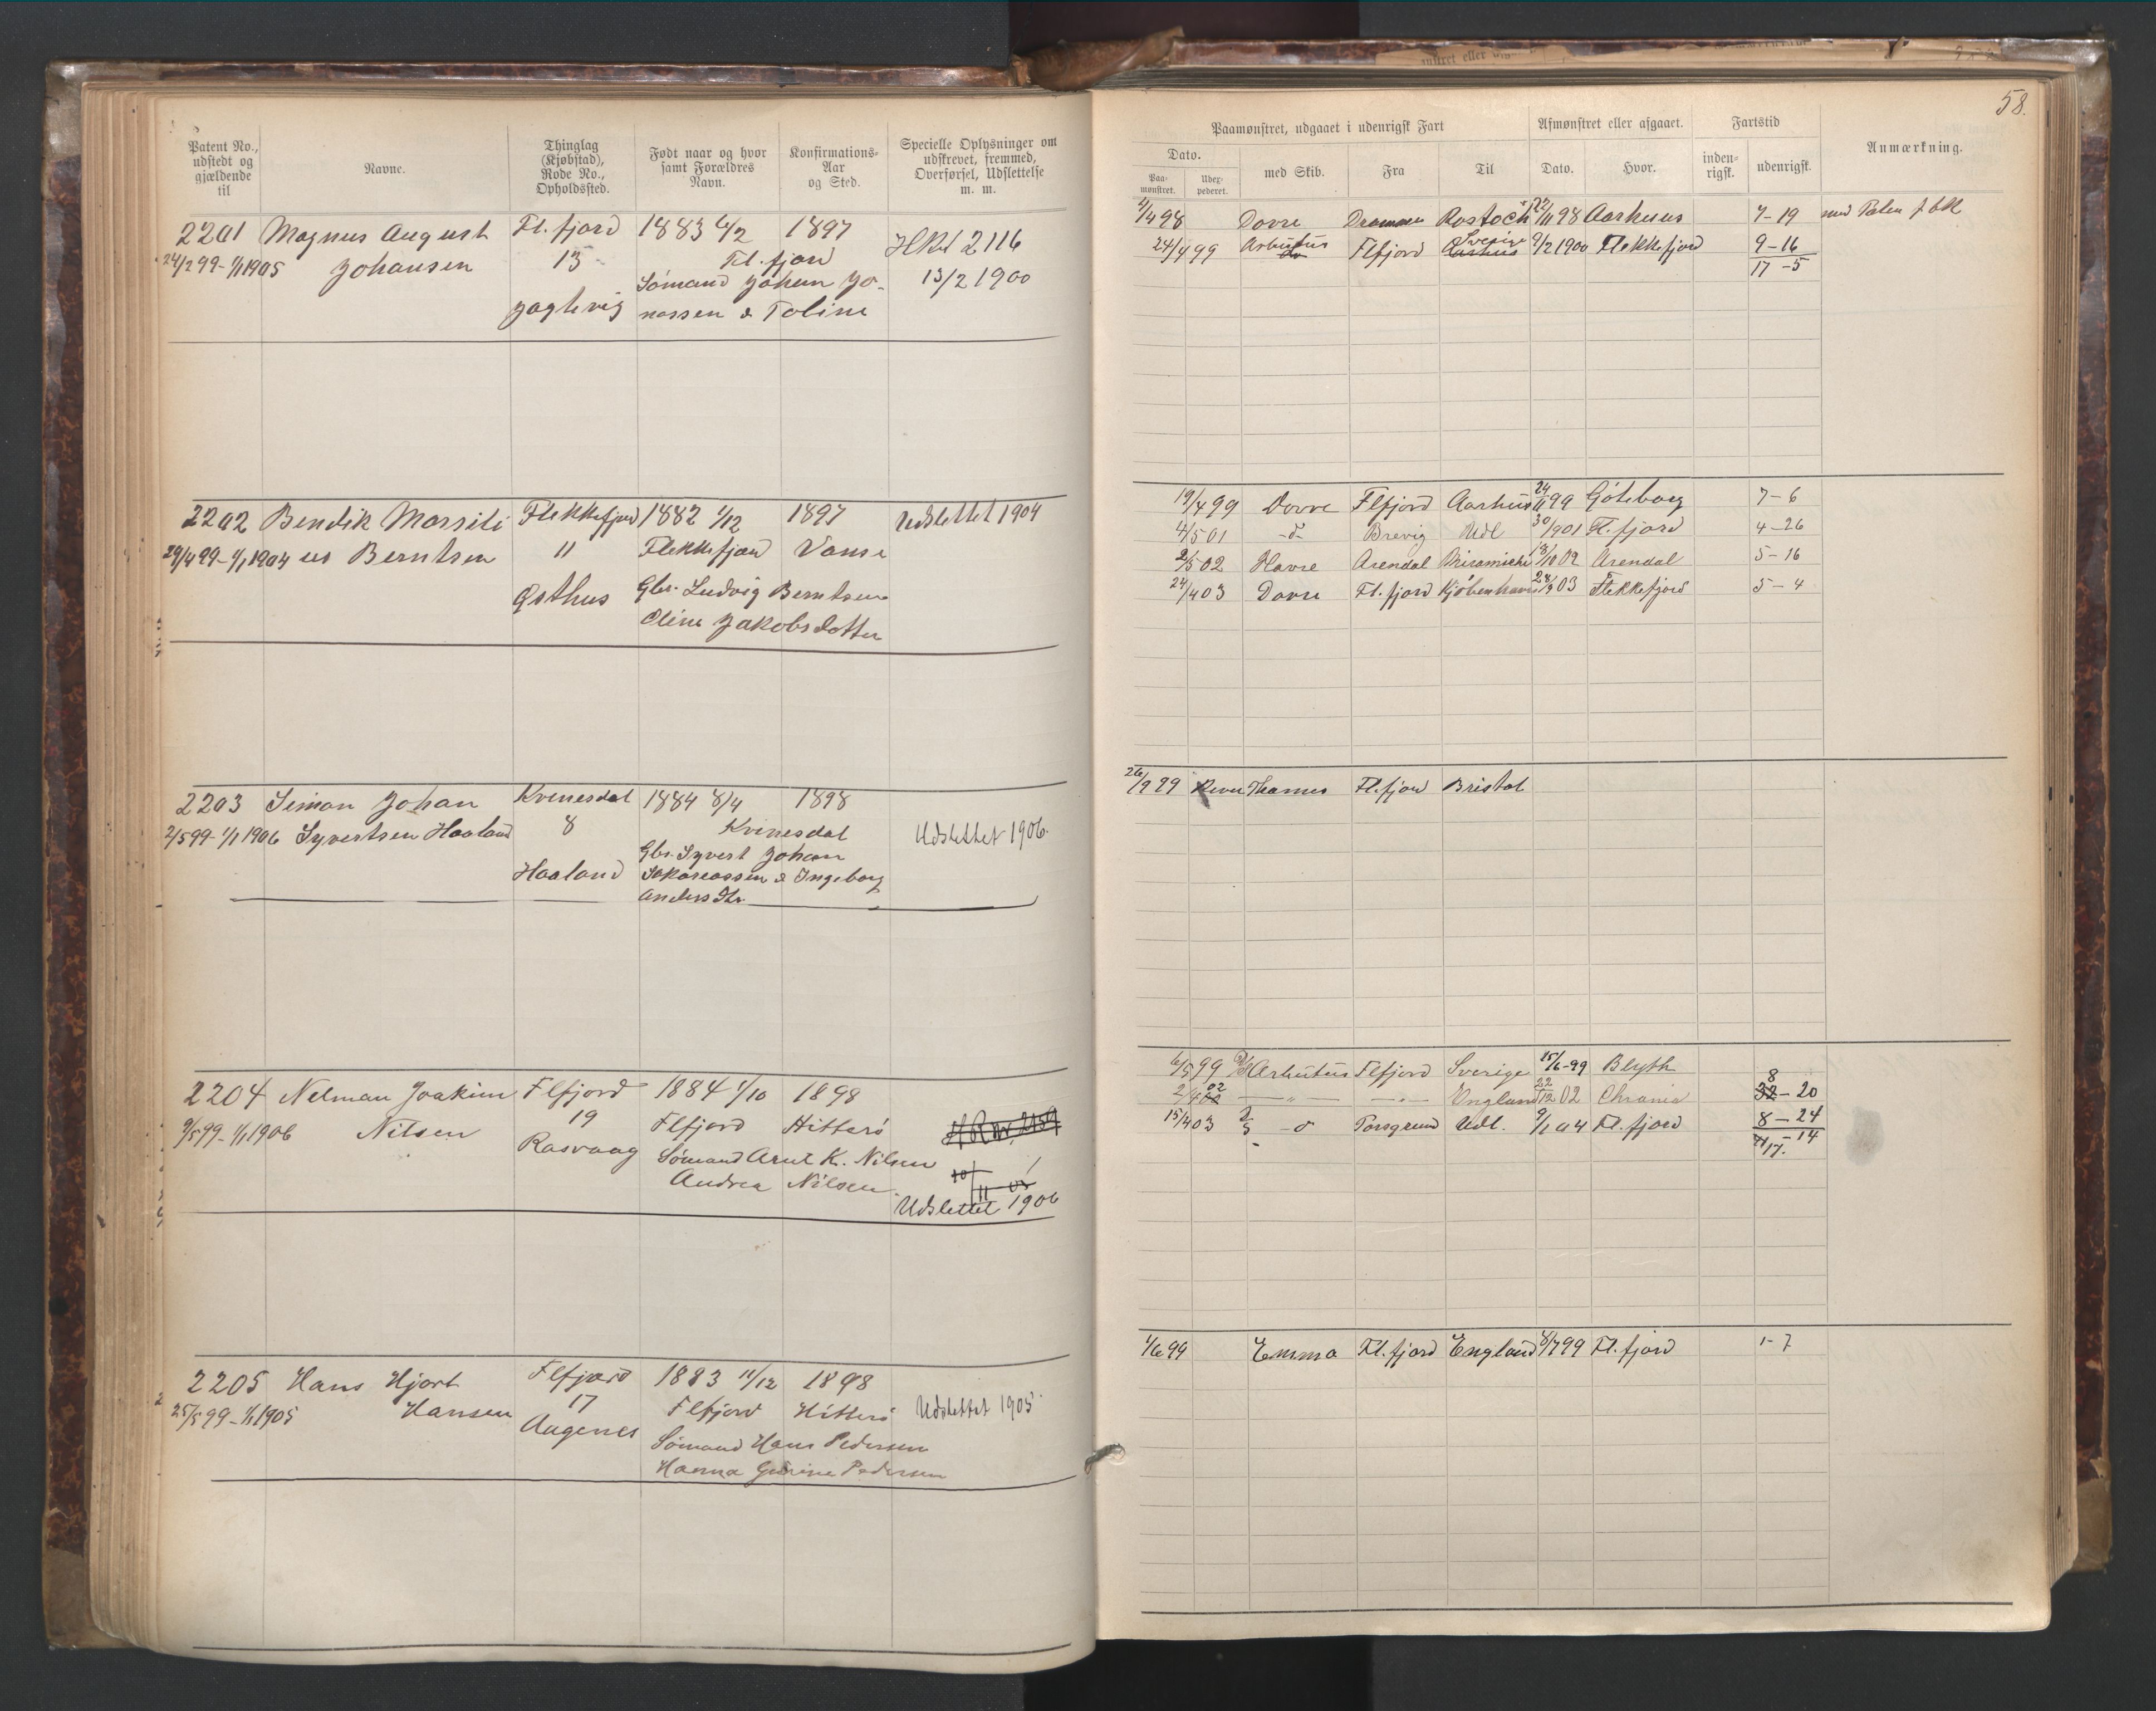 Patent No., udstedt og gjældende til
Navne.
Thinglag (Kjøbstad), Rode No., Opholdssted.
Født naar og hvor samt Forældres Navn.
Konfirmations-Aar og Sted.
Specielle Oplysninger om udskrevet, fremmed, Overførsel, Udslettelse m. m.
2201 Magnus August Fl.fjord 1883 6/2 1897 HRul 2116
24/2 99-1/1 1905 Johansen 13 Fl.fjord 13/2 1900
Sømand Johan Jo-
Joglevig nassen & Toline
2202 Bendik Massili Flekkefjord 1882 1/12 1897 Udslettet 1904
29/4 99-1/1 1904 us Berntsen 11 Flekkefjord Vanse
Østhus Gbr. Ludvig Berntsen
Oline Jakobsdatter
2203 Simon Johan Kvinesdal 1884 8/4 1898
2/5 99-1/1 1906 Syvertsen Haaland 8 Kvinesdal Udslettet 1906.
Gbr. Syvert Johan
Haaland Sakariassen & Ingeborg
Andersdtr.
2204 Nelman Joakim Flfjord 1884 1/10 1898
9/5 99-1/1 1906 Nilsen 19 Flfjord Hitterø
Rasvaag Sømand Arnt K. Nilsen
Andrea Nilsen.
Udslettet 1906
2205 Hans Hjort Flfjord 1883 11/12 1898
25/5 99-1/1 1905 Hansen 17 Flfjord Hitterø Udslettet 1905
Augenes Sømand Hans Pedersen
Hanna Gurine Pedersen
58.
Paamønstret, udgaaet i udenrigsk Fart
Afmønstret eller afgaaet.
Fartstid
Anmærkning.
Dato.
med Skib.
Fra
Til
Dato.
Hvor.
inden-rigsk.
udenrigsk.
Paa-mønstret.
Udex-pederet.
2/4 98 Dovre Drammen Rostock 22/11 98 Aarhuus 7-19
24/4 99 Arbutus Flfjord Sverige Aarhus 9/2 1900 Flekkefjord 9-16
17-5
19/4 99 Dovre Flfjord Aarhus 24/11 99 Göteborg 7-6
4/5 01 -d- Brevig Udl 30/9 01 Fl.fjord 4-26
2/5 02 Havre Arendal Miramichi 18/10 02 Arendal 5-16
24/4 03 Dovre Fl.fjord Kjøbenhavn 28/9 03 Flekkefjord 5-4
26/9 99 River Thames Fl.fjord Bristol
6/5 99 Arbutus Flfjord Sverige 25/6-99 Blyth
2/4 02 — " — — " — England 22/12 02 Chrania 8-20
15/4 03 -d Porsgrund Udl. 9/1 04 Fl.fjord 8-24
17-14
1/6 99 Emma Fl.fjord England 8/7 99 Fl.fjord 1-7